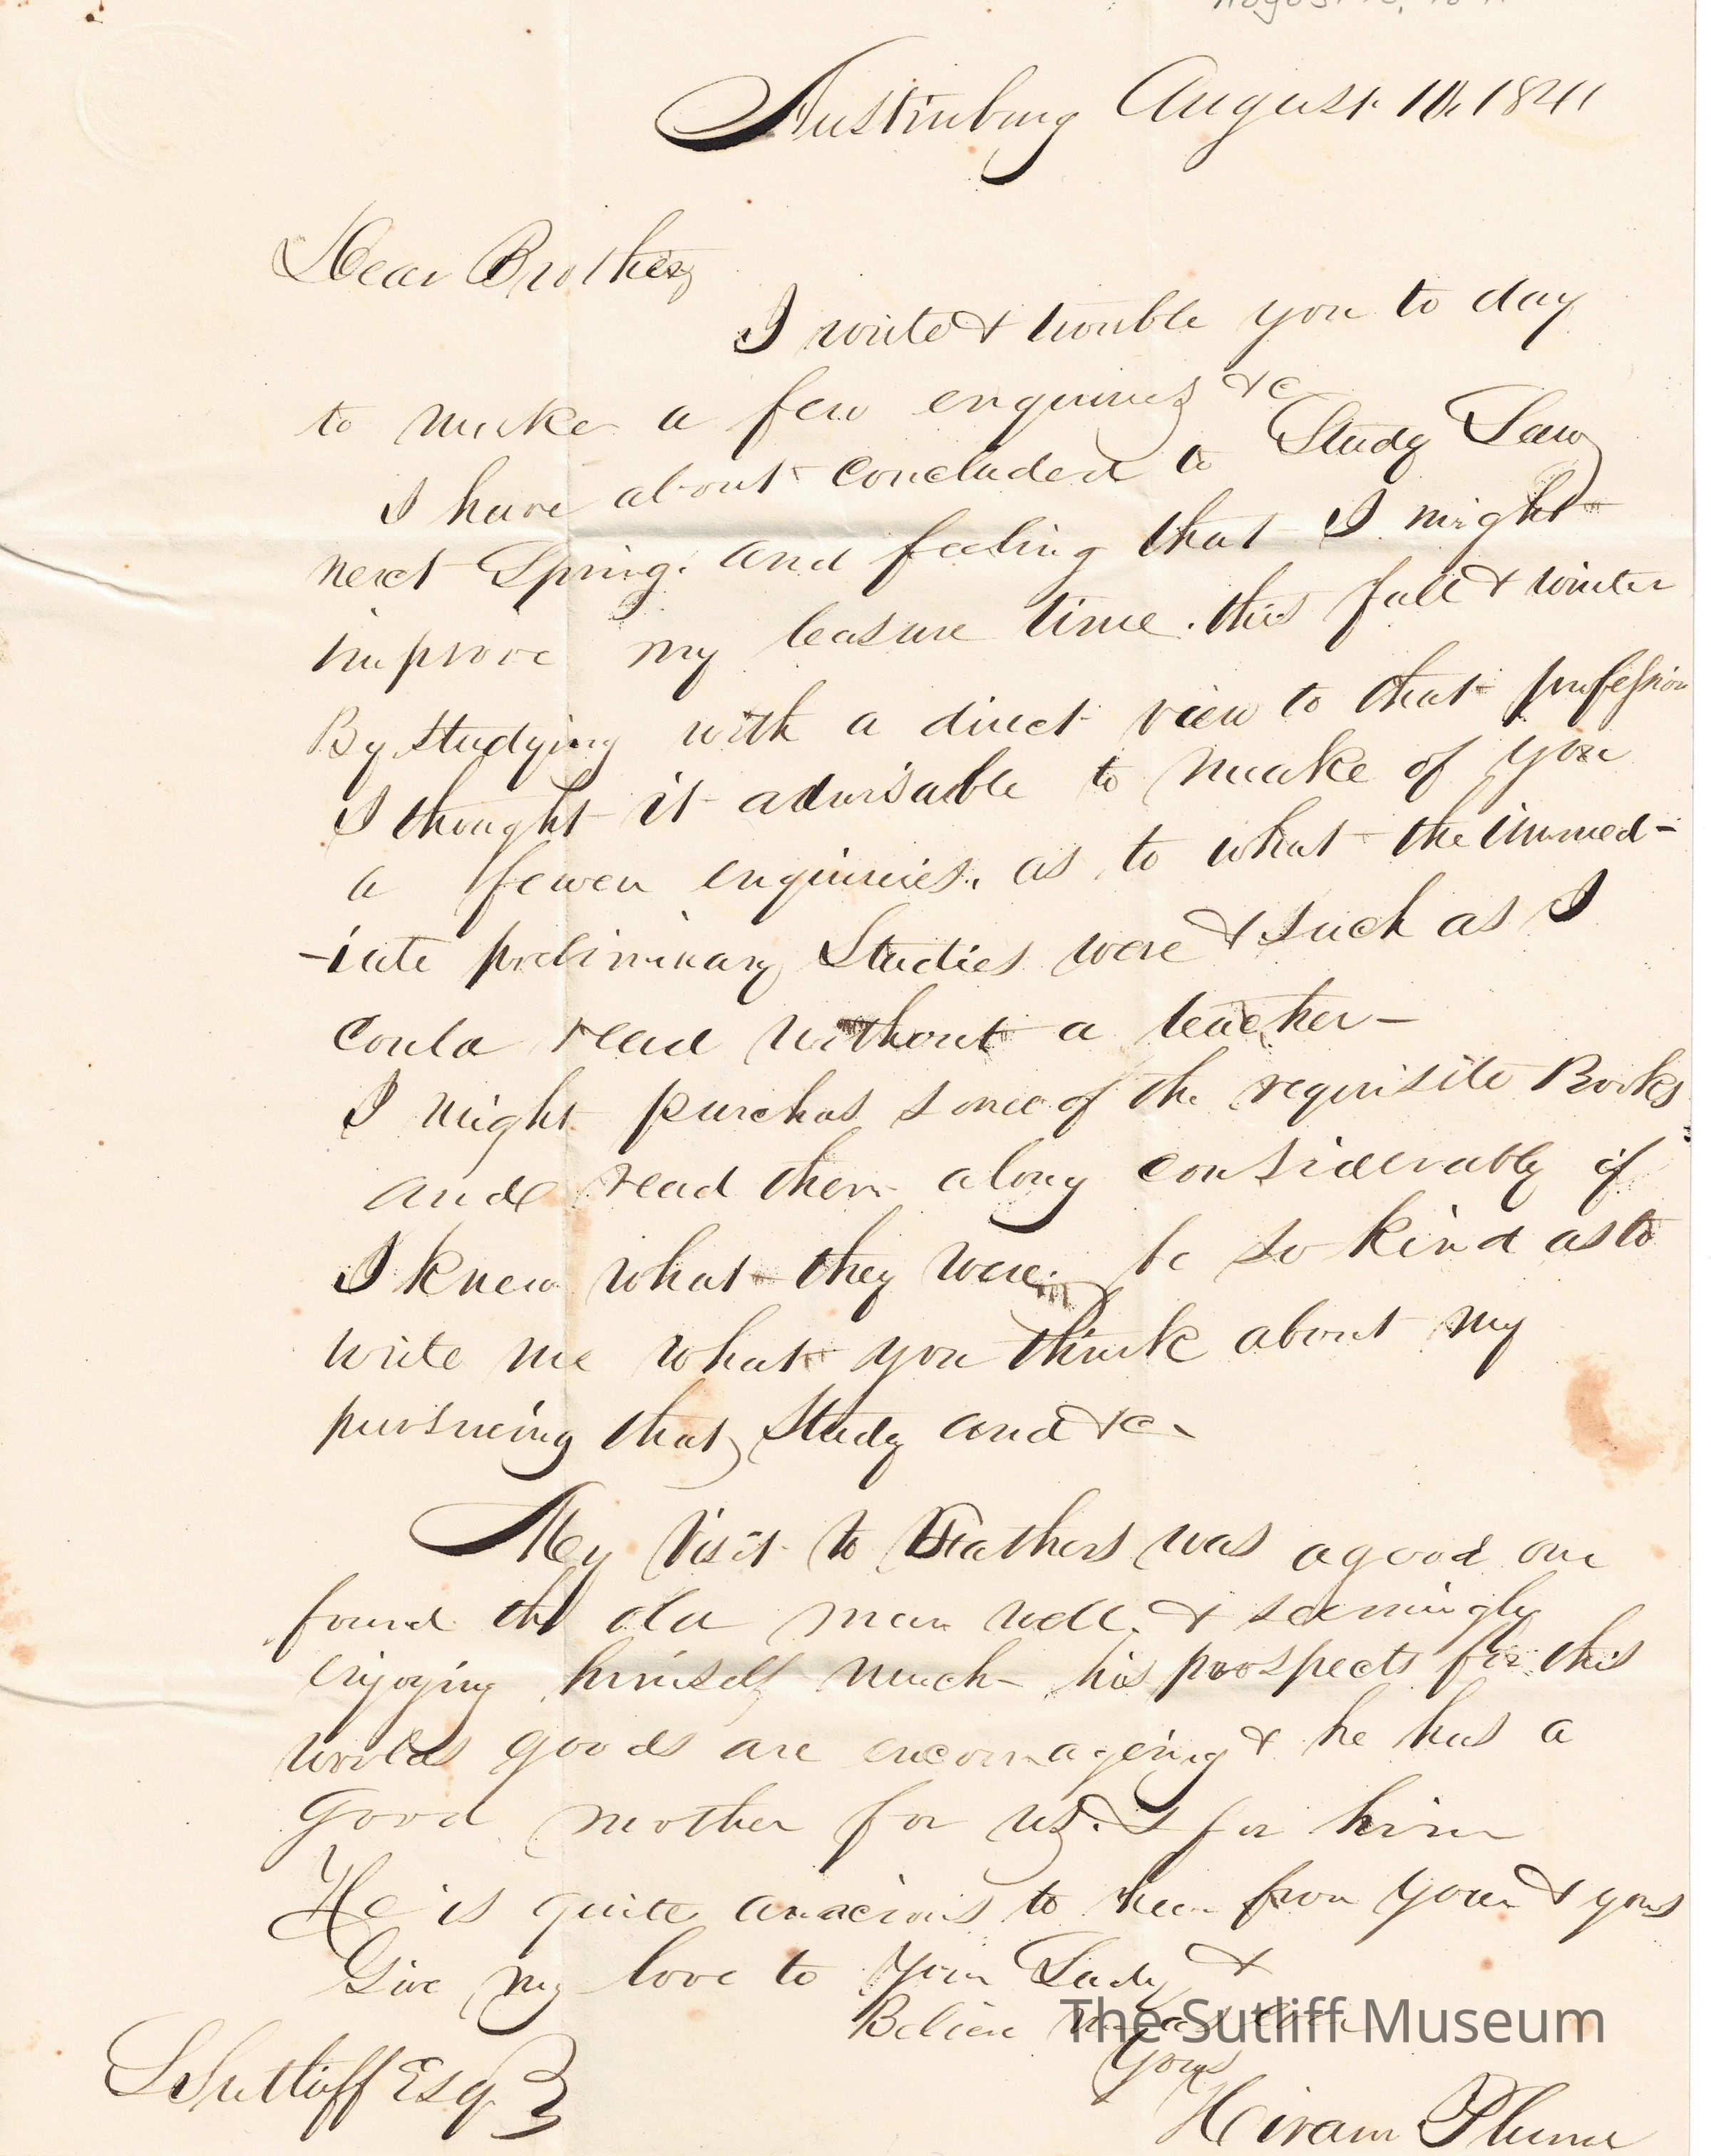 Austinburg August 10, 1841
Dear Brother,
I write & trouble you to day
to make a few enquiries &c
I have about concluded to Study Law
next Spring. and feeling that I might
improve my leasure time. this fall & winter
By Studying with a direct view to that profession
I thought it advisable to make of you
a fewen enquiries. as to what the immed-
-iate preliminary Studies were & such as I
could read without a teacher-
I might purchas some of the requisite Books
and read them along considerably if
I knew what they were. be so kind as to
write me what you think about my
pursueing that Study and &c-
My Visit to Fathers was a good one
found the old man well. & seemingly
enjoying himself much- his prospects for this
worlds goods are encouraging & he has a
good mother for us. & for him
He is quite anxcious to hear from you & yours
Give my love to your Lady &
Believe me as ever
Yours
Hiram Plum
L Sutliff Esq.
The Sutliff Museum